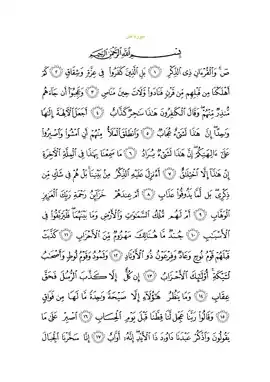 سورة ص
بِسْمِ اللَّهِ الرَّحْمَٰنِ الرَّحِيمِ
صٓ وَالْقُرْءَانِ ذِي الذِّكْرِ ١ بَلِ الَّذِينَ كَفَرُوا فِي عِزَّةٍ وَشِقَاقٍ ٢ كَمْ
أَهْلَكْنَا مِن قَبْلِهِم مِّن قَرْنٍ فَنَادَوا وَّلَاتَ حِينَ مَنَاصٍ ٣ وَعَجِبُوا أَن جَاءَهُم
مُّنذِرٌ مِّنْهُمْ وَقَالَ الْكَٰفِرُونَ هَٰذَا سَٰحِرٌ كَذَّابٌ ٤ أَجَعَلَ الْآلِهَةَ إِلَٰهًا
وَٰحِدًا إِنَّ هَٰذَا لَشَيْءٌ عُجَابٌ ٥ وَانطَلَقَ الْمَلَأُ مِنْهُمْ أَنِ امْشُوا وَاصْبِرُوا
عَلَىٰ ءَالِهَتِكُمْ إِنَّ هَٰذَا لَشَيْءٌ يُرَادُ ٦ مَا سَمِعْنَا بِهَٰذَا فِي الْمِلَّةِ الْآخِرَةِ
إِنْ هَٰذَا إِلَّا اخْتِلَٰقٌ ٧ أَءُنزِلَ عَلَيْهِ الذِّكْرُ مِن بَيْنِنَا بَلْ هُمْ فِي شَكٍّ مِّن
ذِكْرِي بَل لَّمَّا يَذُوقُوا عَذَابِ ٨ أَمْ عِندَهُمْ خَزَائِنُ رَحْمَةِ رَبِّكَ الْعَزِيزِ
الْوَهَّابِ ٩ أَمْ لَهُم مُّلْكُ السَّمَٰوَٰتِ وَالْأَرْضِ وَمَا بَيْنَهُمَا فَلْيَرْتَقُوا فِي
الْأَسْبَٰبِ ١٠ جُندٌ مَّا هُنَالِكَ مَهْزُومٌ مِّنَ الْأَحْزَابِ ١١ كَذَّبَتْ
قَبْلَهُمْ قَوْمُ نُوحٍ وَعَادٌ وَفِرْعَوْنُ ذُو الْأَوْتَادِ ١٢ وَثَمُودُ وَقَوْمُ لُوطٍ وَأَصْحَٰبُ
لْـَٔيْكَةِ أُولَٰئِكَ الْأَحْزَابُ ١٣ إِن كُلٌّ إِلَّا كَذَّبَ الرُّسُلَ فَحَقَّ
عِقَابِ ١٤ وَمَا يَنظُرُ هَٰؤُلَاءِ إِلَّا صَيْحَةً وَٰحِدَةً مَّا لَهَا مِن فَوَاقٍ
١٥ وَقَالُوا رَبَّنَا عَجِّل لَّنَا قِطَّنَا قَبْلَ يَوْمِ الْحِسَابِ ١٦ اصْبِرْ عَلَىٰ مَا
يَقُولُونَ وَاذْكُرْ عَبْدَنَا دَاوُودَ ذَا الْأَيْدِ إِنَّهُ أَوَّابٌ ١٧ إِنَّا سَخَّرْنَا الْجِبَالَ